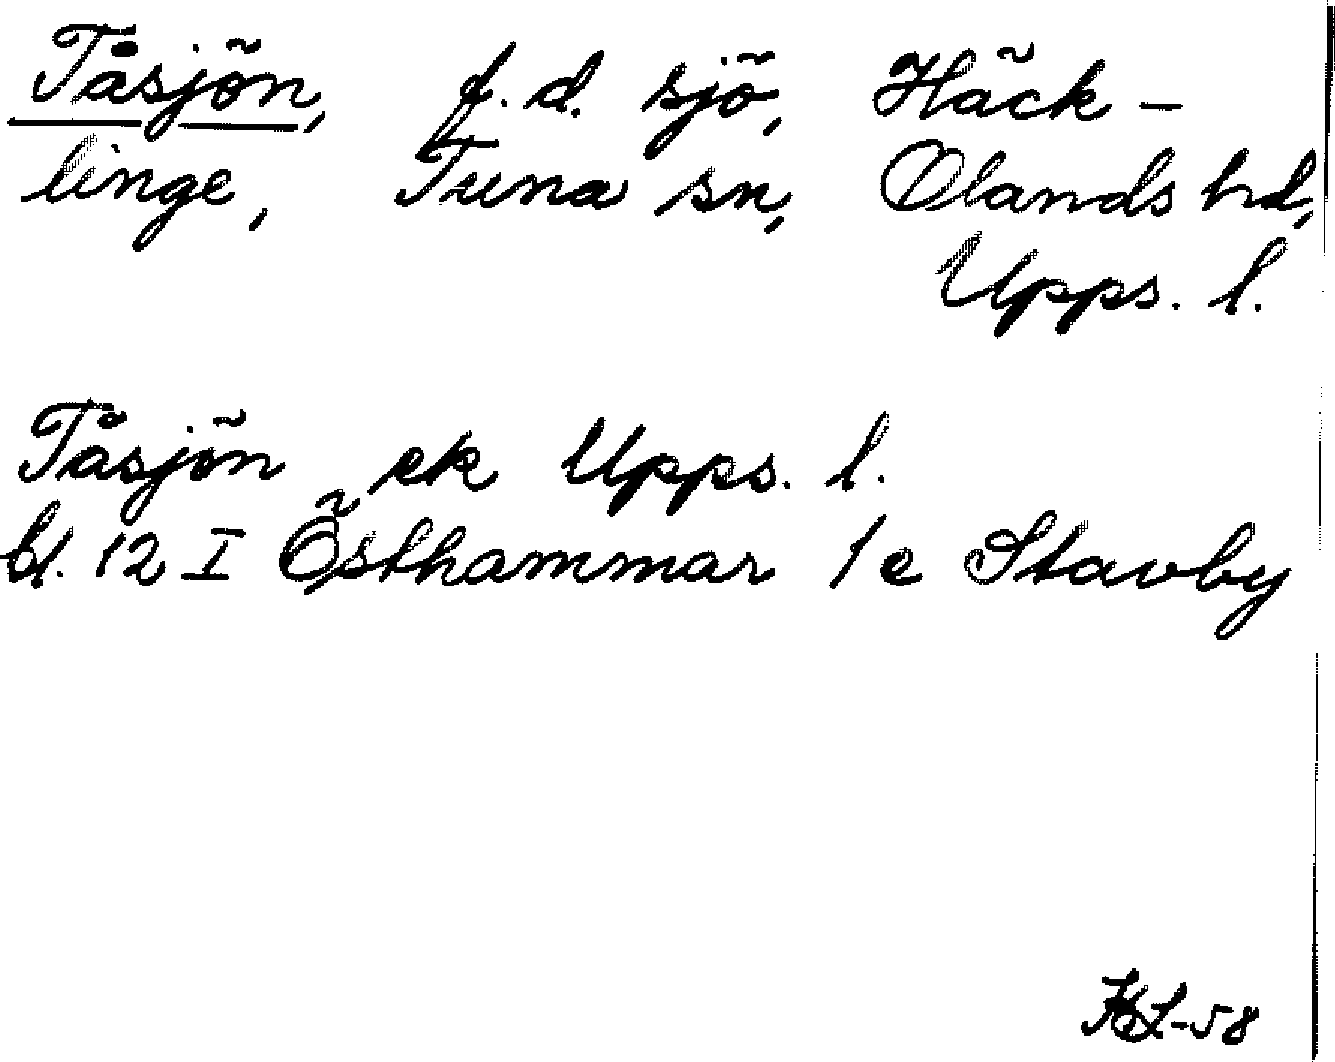 Tåsjön, f.d. sjö, Häck-
linge, Tuna sn, Olands hd,
Upps. l.
Tåsjön ek Upps. l.
bl. 12 I Östhammar 1e Stavby
-58